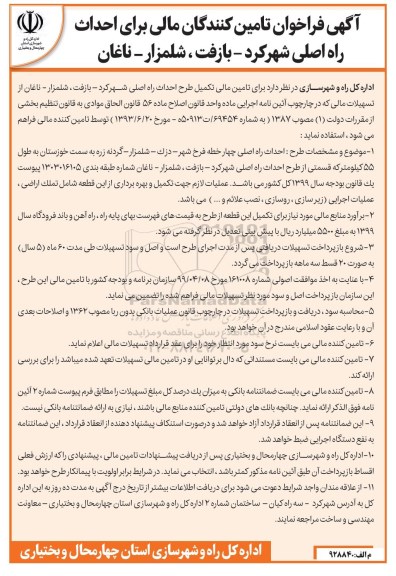 آگهی فراخوان تامین کنندگان مالی برای احداث
راه اصلی شهرکرد - بازفت ، شلمزار - ناغان
اداره کل راه و شهرسازی
استان چهارمحال و بختیاری
اداره کل راه و شهرســازی در نظر دارد برای تامین مالی تکمیل طرح احداث راه اصلی شــهرکرد - بازفت ، شلمزار - ناغان از
تسهیلات مالی که در چارچوب آئین نامه اجرایی ماده واحد قانون اصلاح ماده ۵۶ قانون الحاق موادی به قانون تنظیم بخشی
از مقررات دولت (۱) مصوب ۱۳۸۷ ( به شماره ۶۹۴۵۴/ت۵۰۹۱۳ه - مورخ ۱۳۹۳/۶/۲۰ ) توسط تامین کننده مالی فراهم
می شود ، استفاده نماید :
۱-موضوع و مشخصات طرح : احداث راه اصلی چهار خطه فرخ شهر - دزک - شلمزار-گردنه زره به سمت خوزستان به طول
۵۵ کیلومترکه قسمتی از طرح احداث راه اصلی شهرکرد - بازفت ، شلمزار - ناغان شماره طبقه بندی ۱۳۰۳۰۱۶۱۰۵ پیوست
یک قانون بودجه سال ۱۳۹۹ کل کشور می باشــد. عملیات لازم جهت تکمیل و بهره برداری از این قطعه شامل تملک اراضی ،
عملیات اجرایی ( زیر سازی ، روسازی ، نصب علائم و ... ) می باشد.
۲-برآورد منابع مالی مورد نیاز برای تکمیل این قطعه از طرح به قیمت های فهرست بهای پایه راه ، راه آهن و باند فرودگاه سال
۱۳۹۹ به مبلغ ۵۵۰۰ میلیارد ریال با پیش بینی تعدیل در نظر گرفته می شود.
۳-شروع باز پرداخت تسهیلات دریافتی پس از مدت اجرای طرح است و اصل و سود تسهیلات طی مدت ۶۰ ماه (۵ سال)
به صورت ۲۰ قسط سه ماهه بازپرداخت می گردد.
۴-با عنایت به اخذ موافقت اصولی شماره ۱۶۱۰۰۸ مورخ ۹۹/۰۴/۰۸ سازمان برنامه و بودجه کشور با تامین مالی این طرح ،
این سازمان بازپرداخت اصل و سود مورد نظر تسهیلات مالی فراهم شده را تضمین می نماید.
۵-محاسبه سود ، دریافت و بازپرداخت تسهیلات در چارچوب قانون عملیات بانکی بدون ربا مصوب ۱۳۶۲ و اصلاحات بعدی
آن و با رعایت عقود اسلامی مندرج در آن خواهد بود.
۶- تامین کننده مالی می بایست نرخ سود مورد انتظار خود را برای عقد قرارداد تسهیلات مالی اعلام نماید.
۷- تامین کننده مالی می بایست مستنداتی که دال بر توانایی او در تامین مالی تسهیلات تعهد شده میباشد را برای بررسی
ارائه کند.
۸- تامین کننده مالی می بایست ضمانتنامه بانکی به میزان یک درصد کل مبلغ تسهیلات را مطابق فرم پیوست شماره ۲ آئین
نامه فوق الذکر ارائه نماید. چنانچه بانک های دولتی تامین کننده منابع مالی باشند ، نیازی به ارائه ضمانتنامه بانکی نیست.
۹- این ضمانتنامه پس از انعقاد قرارداد آزاد خواهد شد و درصورت استنکاف پیشنهاد دهنده از انعقاد قرارداد ، این ضمانتنامه
به نفع دستگاه اجرایی ضبط خواهد شد.
۱۰-اداره کل راه و شهرســازی چهارمحال و بختیاری پس از دریافت پیشــنهادات تامین مالی ، پیشنهادی را که ارزش فعلی
اقساط بازپرداخت آن طبق آئین نامه مذکور کمتر باشد ، انتخاب می نماید. در شرایط برابر اولویت با پیمانکار طرح خواهد بود.
۱۱- از علاقه مندان واجد شرایط دعوت می شود برای دریافت اطلاعات بیشتر از تاریخ درج آگهی به مدت ده روز به این اداره
کل به آدرس شهرکرد - سه راه کیان - ساختمان شماره ۲ اداره کل راه و شهرسازی استان چهارمحال و بختیاری - معاونت
مهندسی و ساخت مراجعه نمایند.
اداره کل راه و شهرسازی استان چهارمحال و بختیاری
م الف: ۹۲۸۸۴۰